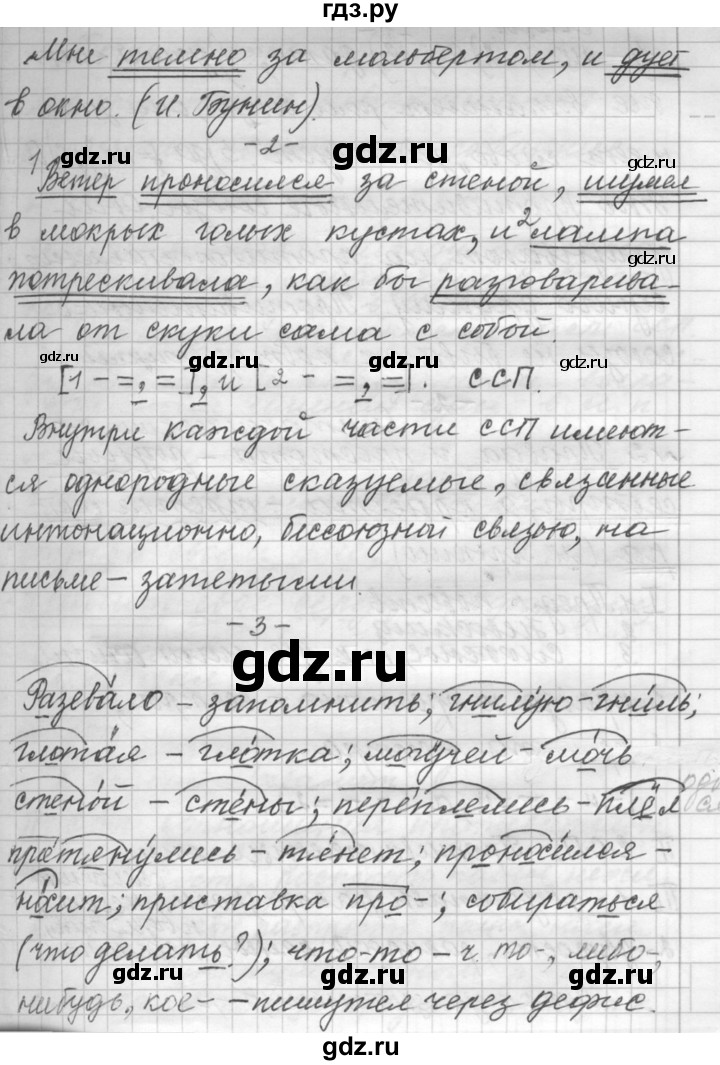 гдз.ру
Мне темно за мольбертом, и дует
в окно. (И. Бунин).
gdz.ru
gdz.ru
-2-
gdz.ru
gdz.ru
1 Ветер проносился за стеной, шумел
в мокрых голых кустах, и 2 лампа
gdz.ru
gdz.ru
потрескивала, как бы разговарива-
ла от скуки сама с собой.
gdz.ru
gdz.ru
gdz.ru
[1 - =, =], и [2 - =, =]. ССП.
Внутри каждой части ССП имеют-
gdz.ru
gdz.ru
ся однородные сказуемые, связанные
интонационно, бессоюзной связью, на
gdz.ru
gdz.ru
письме – запятыми.
-3-
gdz.ru
Разевало – запомнить; гнилую – гниль;
gdz.ru
gdz.ru
глотая – глотка; могучей – мочь
gdz.ru
стеной – стены; переплелись – плёл
gdz.ru
gdz.ru
протянулись – тянет; проносился –
gdz.ru
gdz.ru
носит; приставка про-; собираться
(что делать?); что-то – ч. то-, либо-,
gdz.ru
gdz.ru
нибудь, кое- – пишутся через дефис.
gdz.ru